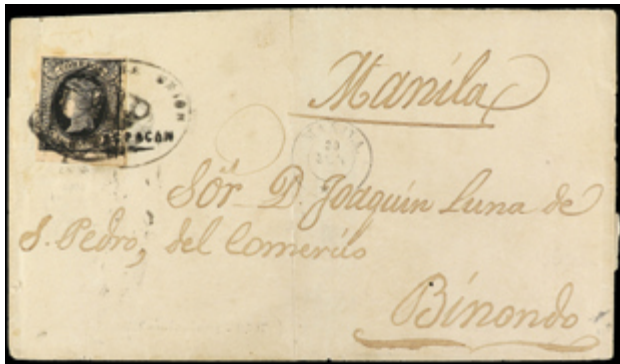 CORREOS
UNION
Manila
MANILA
Sór D. Joaquin Luna de
S. Pedro, del Comercio
Binondo